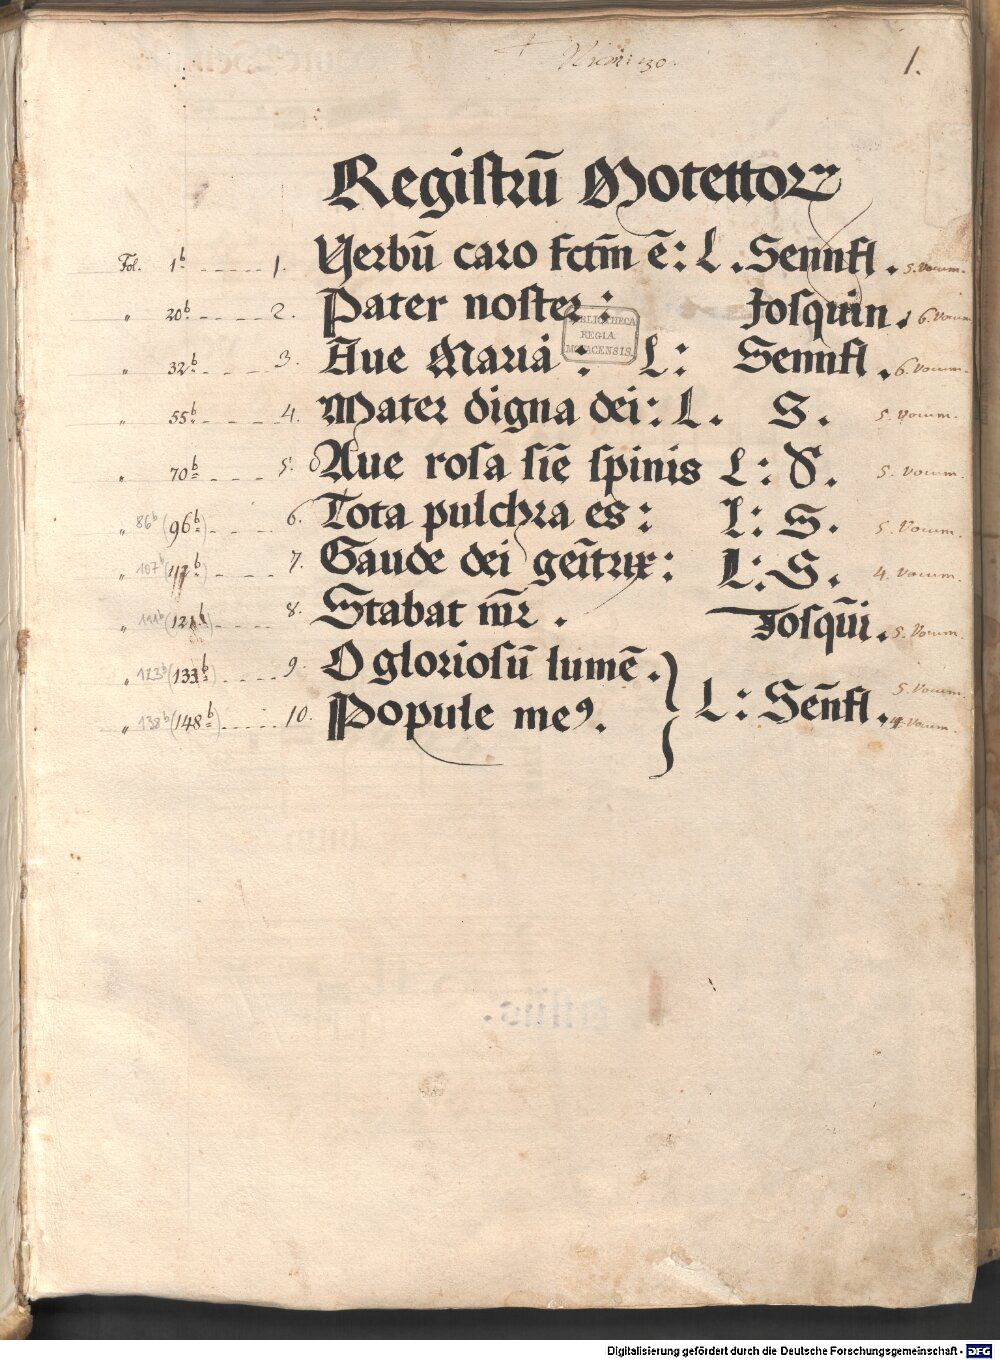 1.
Registrū Motettorͫ
Fol. 1ᵇ 1. Verbū caro fctm̄ ē: L. Sennfl. 5. Vocum.
" 20ᵇ 2. Pater noster: Josquin. 6. Vocum
" 32ᵇ 3. Aue Maria: L: Sennfl. 6. Vocum.
" 55ᵇ 4. Mater digna dei: L. S. 5. Vocum.
" 70ᵇ 5. Aue rosa siē spinis L: S. 5. Vocum.
" 86ᵇ (96ᵇ) 6. Tota pulchra es: L: S. 5. Vocum.
" 107ᵇ (117ᵇ) 7. Gaude dei geītrix: L: S. 4. Vocum.
" 111ᵇ (121ᵇ) 8. Stabat mr̄. Josqūi. 5. Vocum.
" 123ᵇ (133ᵇ) 9. O gloriosū lumē. 5. Vocum.
L: Sēnfl.
" 138ᵇ (148ᵇ) 10. Popule meꝰ. 4. Vocum.
BIBLIOTHECA
REGIA
MONACENSIS.
Digitalisierung gefördert durch die Deutsche Forschungsgemeinschaft - DFG